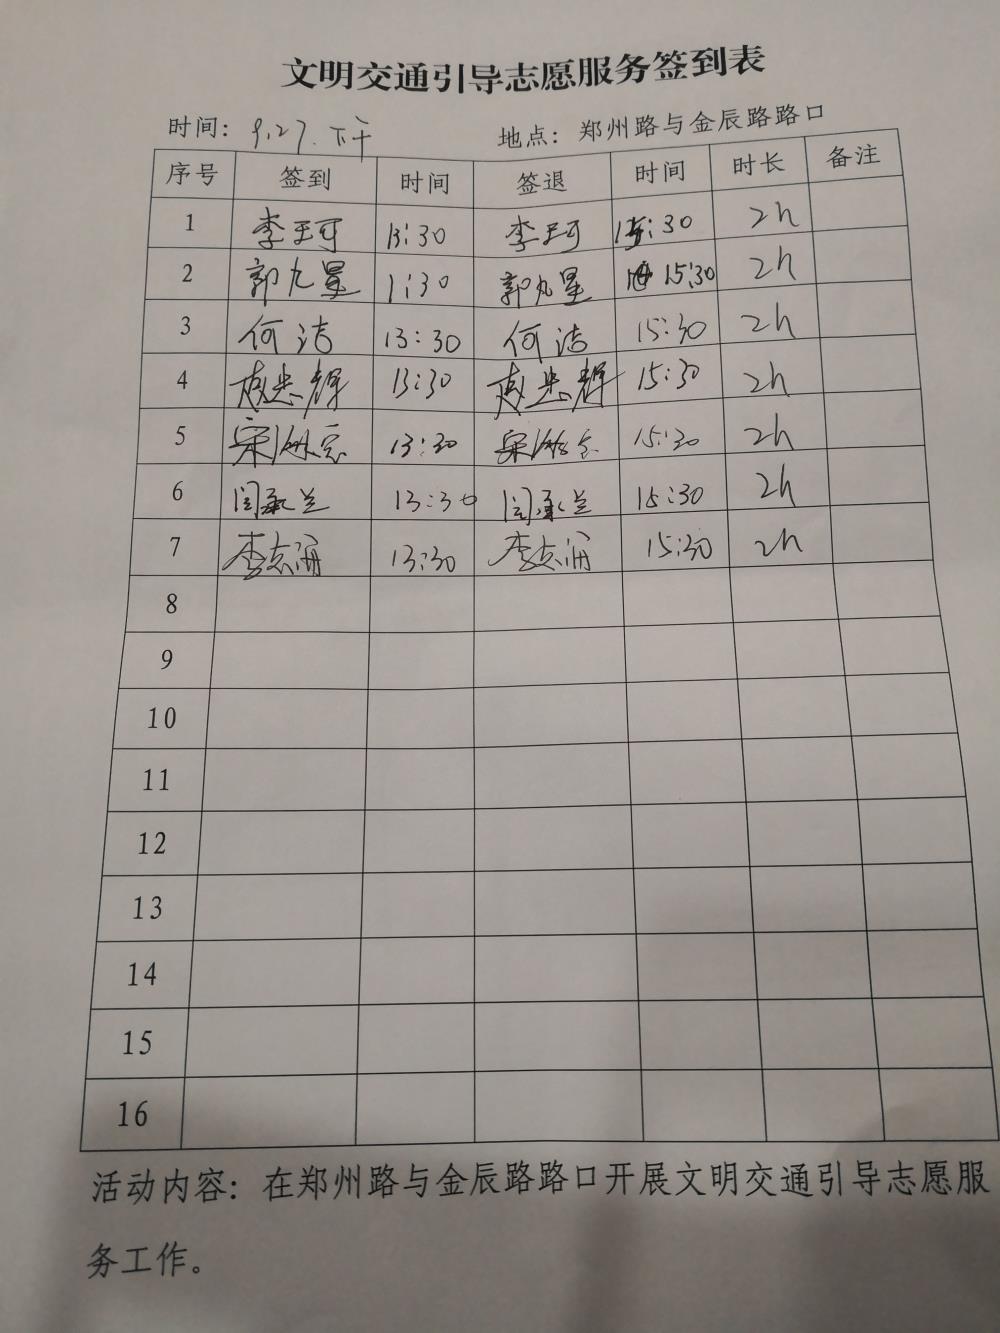 文明交通引导志愿服务签到表
时间: 9.27.下午 地点: 郑州路与金辰路路口
序号 签到 时间 签退 时间 时长 备注
1 李玉珂 13:30 李玉珂 15:30 2h
2 郭九星 1:30 郭九星 15:30 2h
3 何洁 13:30 何洁 15:30 2h
4 13:30 15:30 2h
5 13:30 15:30 2h
6 闫承兰 13:30 闫承兰 15:30 2h
7 李志涌 13:30 李志涌 15:30 2h
8
9
10
11
12
13
14
15
16
活动内容: 在郑州路与金辰路路口开展文明交通引导志愿服
务工作。